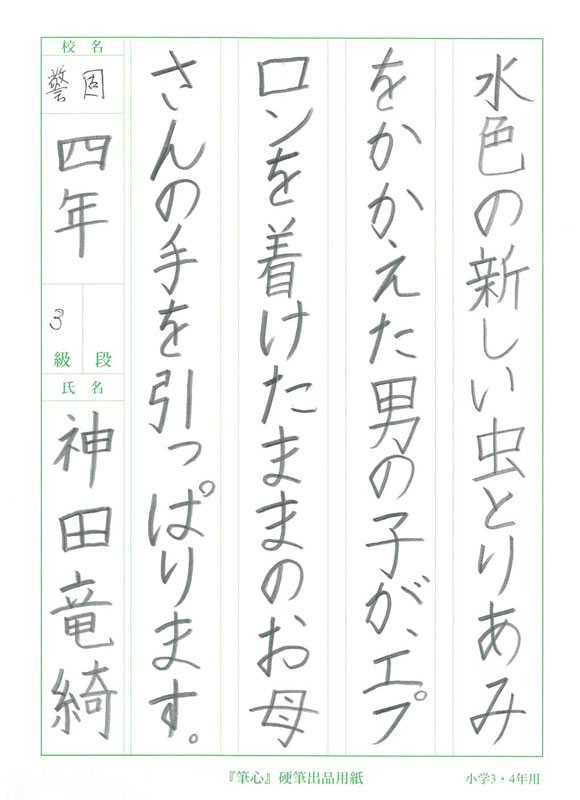 水色の新しい虫とりあみ
をかかえた男の子が、エプ
ロンを着けたままのお母
さんの手を引っぱります。
校名
警固
四年
3
級 段
氏名
神田竜綺
『筆心』硬筆出品用紙
小学3・4年用